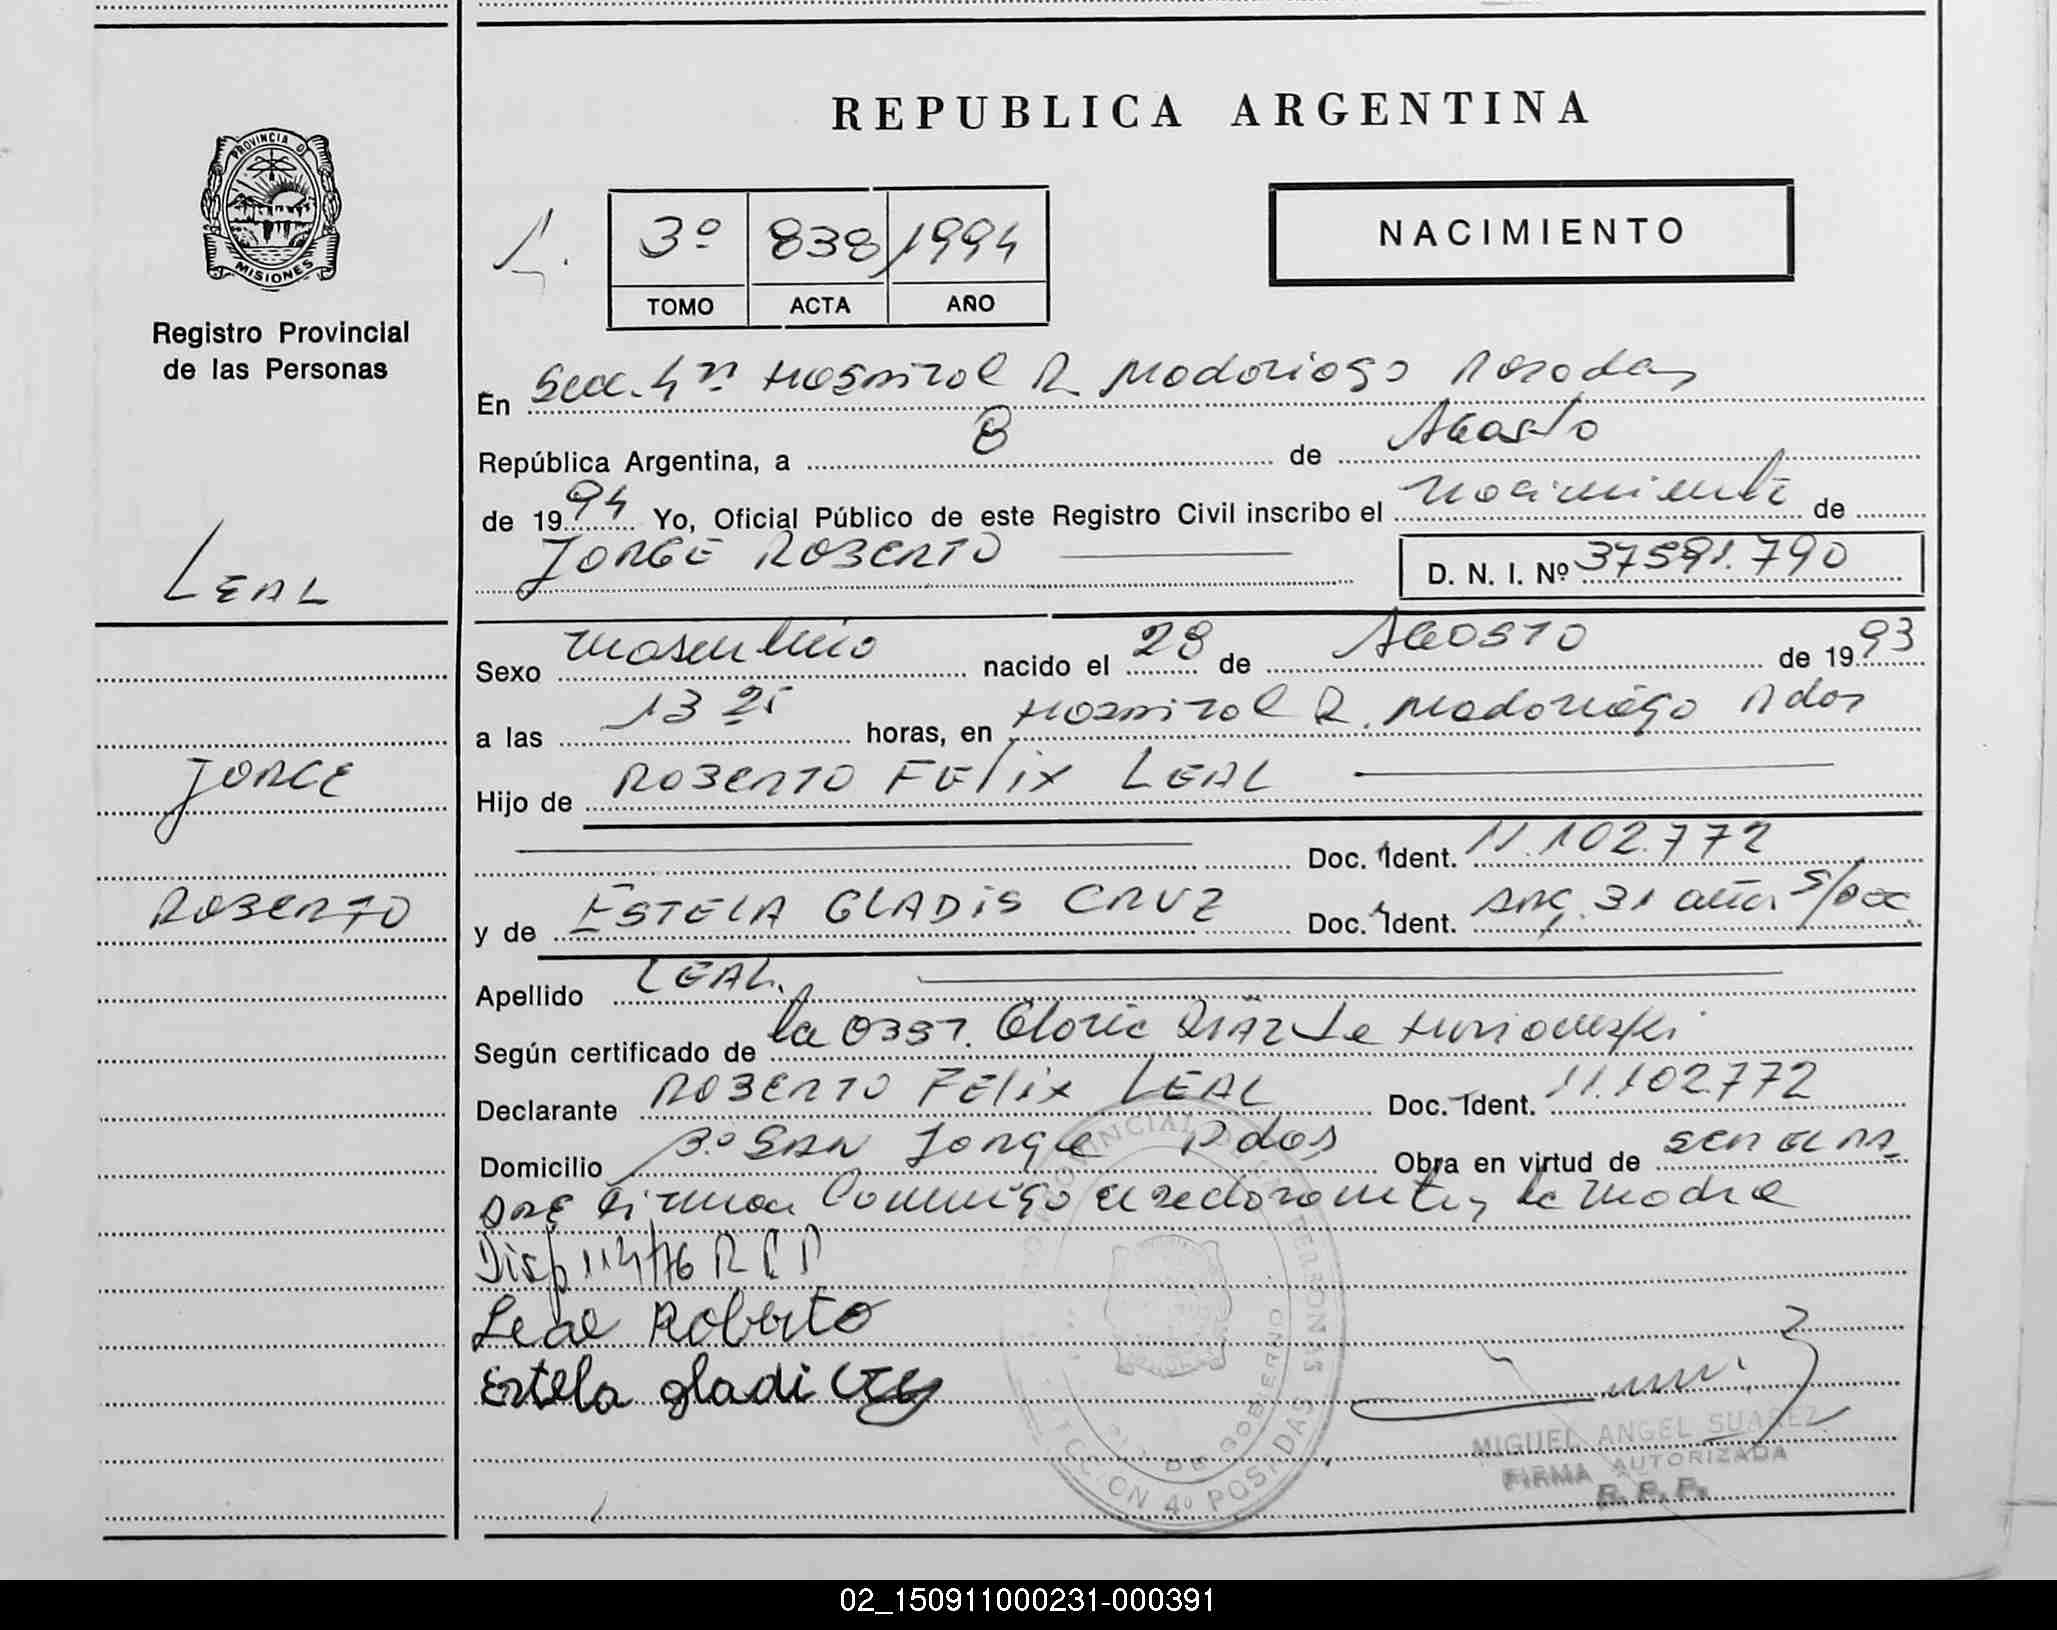 REPUBLICA ARGENTINA
PROVINCIA DE
MISIONES
Registro Provincial
de las Personas
3º 838 1994
TOMO ACTA AÑO
NACIMIENTO
En Secc. 4ª Hospital R Madariaga Posadas
República Argentina, a 8 de Agosto
de 1994 Yo, Oficial Público de este Registro Civil inscribo el nacimiento de
JORGE ROBERTO
D. N. I. Nº 37591.790
LEAL
Sexo masculino nacido el 28 de AGOSTO de 1993
a las 13 25 horas, en Hospital R. Madariaga Pdas
JORGE
Hijo de ROBERTO FELIX LEAL
Doc. Ident. 11.102.772
ROBERTO
y de ESTELA GLADIS CRUZ Doc. Ident. ARG. 31 años S/Doc.
Apellido LEAL.
Según certificado de la OBST. Gloria DIAZ de
Declarante ROBERTO FELIX LEAL Doc. Ident. 11.102.772
Domicilio Bº SAN Jorge Pdas Obra en virtud de SER EL PA
DRE Firman Conmigo el declarante y la Madre
Disp 114/76 R P P
Leal Roberto
Estela gladi
MIGUEL ANGEL SUAREZ
FIRMA AUTORIZADA
R. P. P.
SECCION 4º POSADAS
02_150911000231-000391